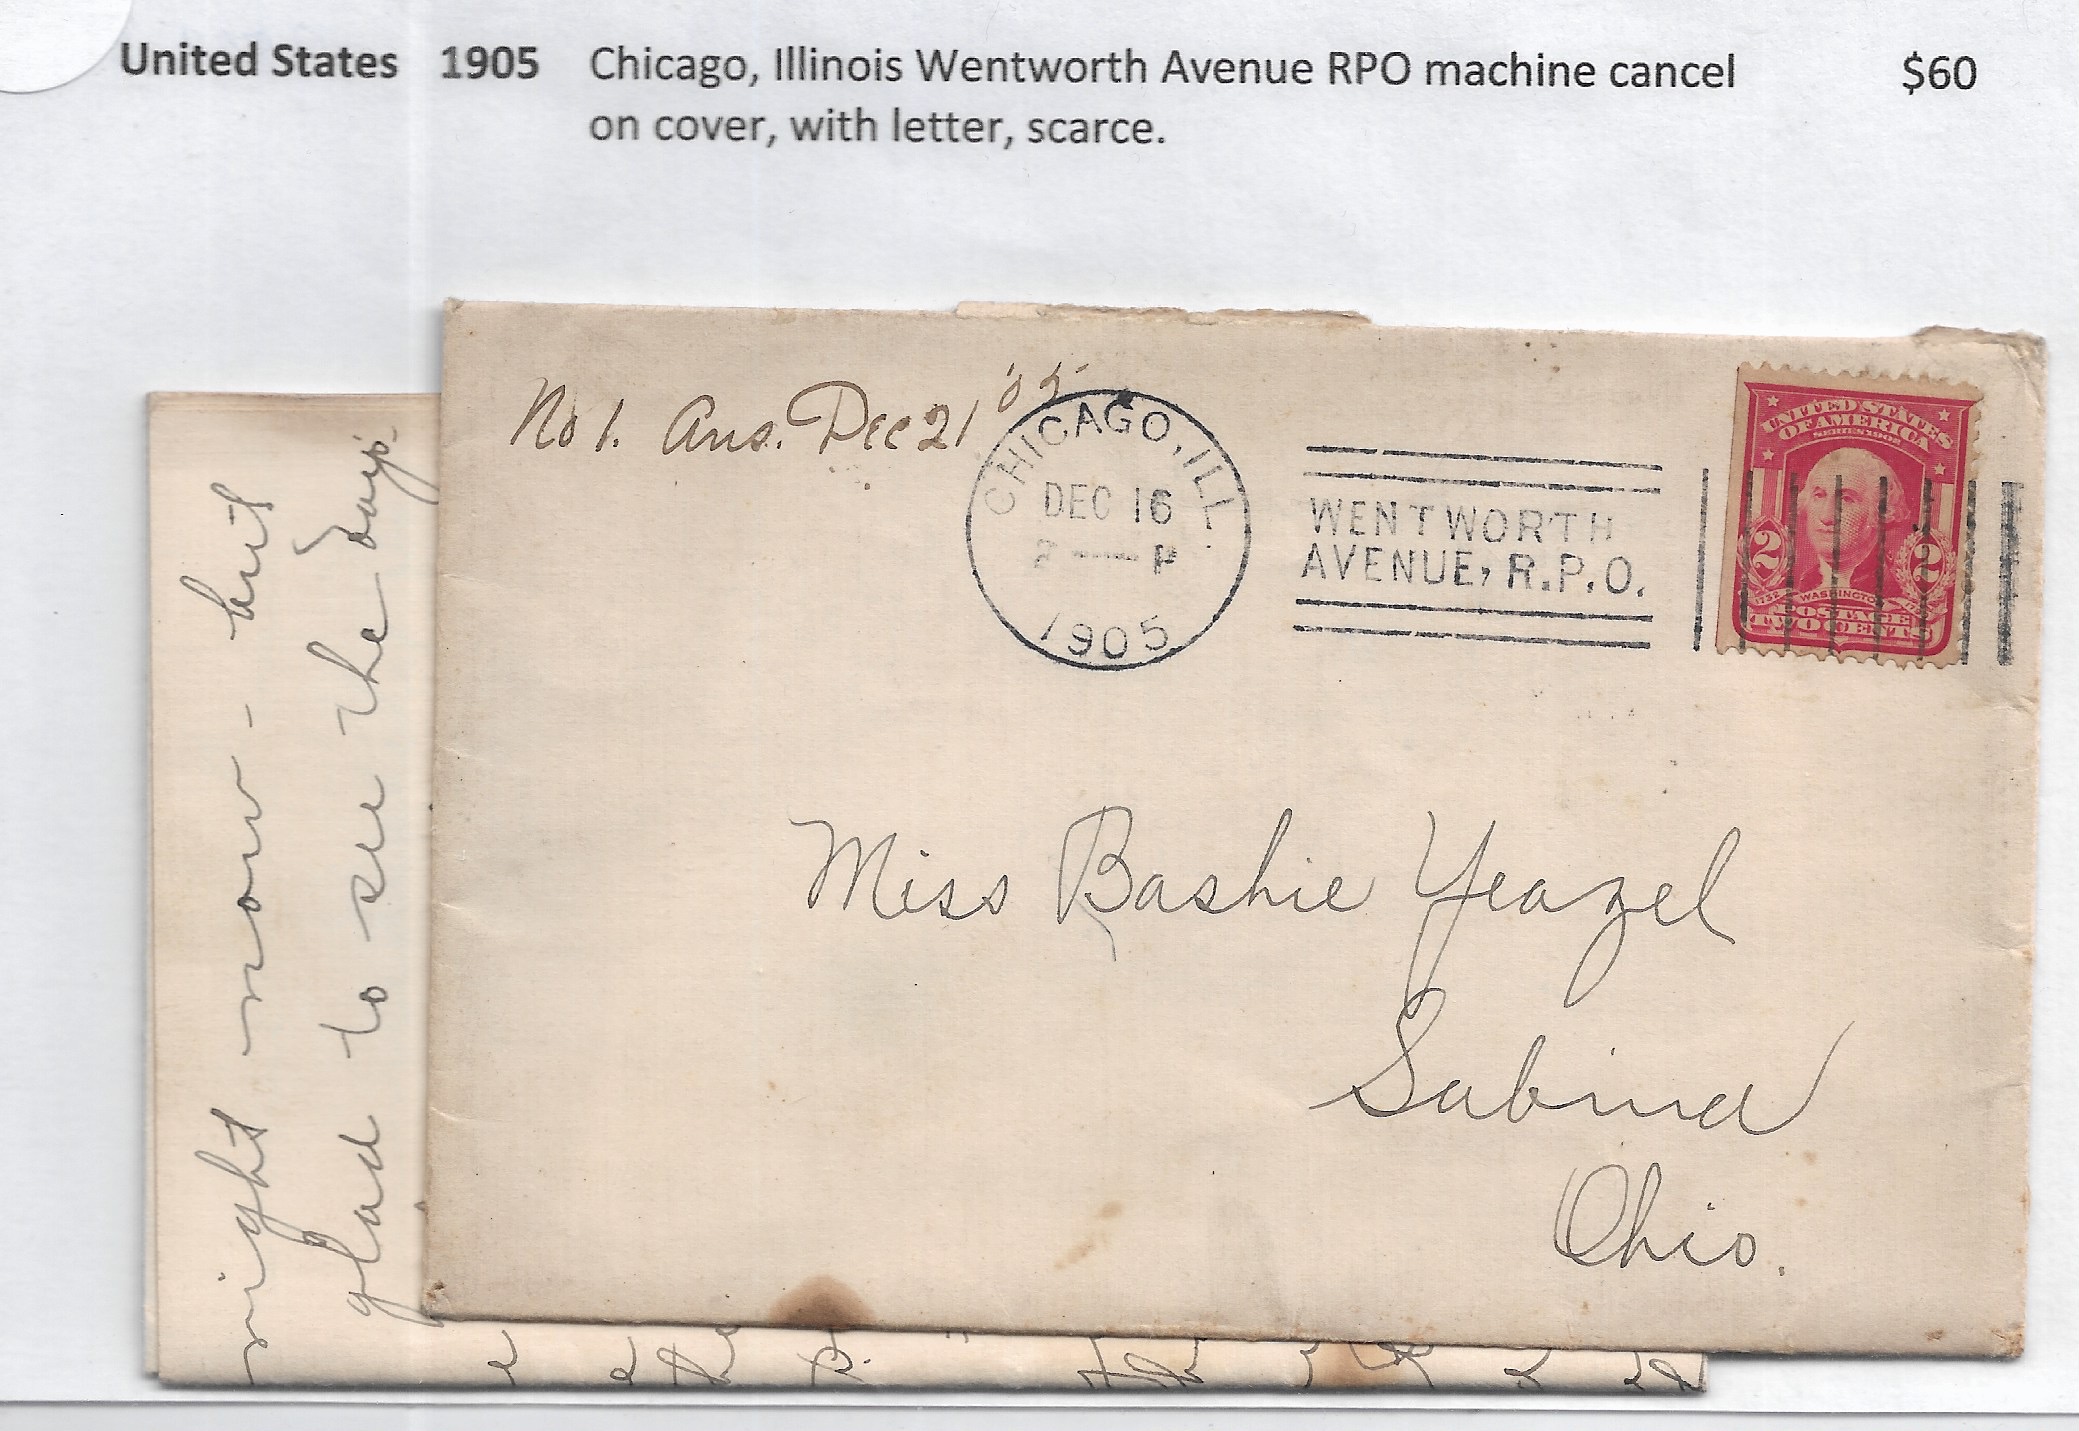 United States 1905 Chicago, Illinois Wentworth Avenue RPO machine cancel $60
on cover, with letter, scarce.
No 1. Ans. Dec 21 '05
CHICAGO, ILL.
DEC 16
2 — P
1905
WENTWORTH
AVENUE, R.P.O.
UNITED STATES
OF AMERICA
SERIES 1902
2 2
1732 WASHINGTON
POSTAGE
TWO CENTS
Miss Bashie Yeazel
Sabina
Ohio.
night now - but
glad to see the days-